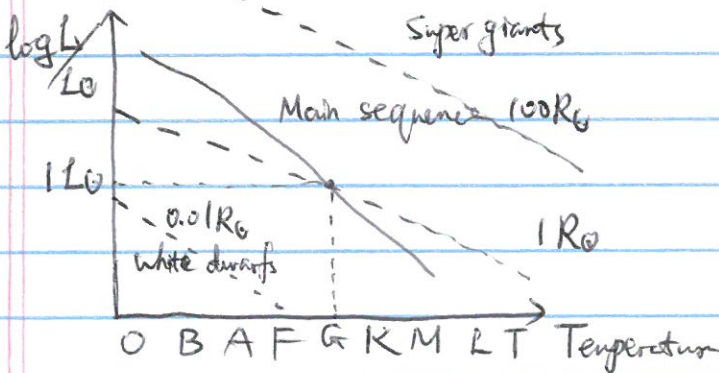 log L/L⊙
Super giants
Main sequence 100R⊙
1L⊙
0.01R⊙
white dwarfs
1R⊙
O B A F G K M L T Temperature